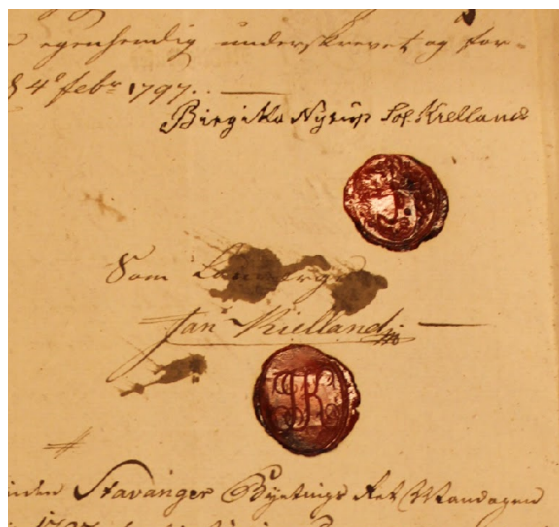 egenhendig underskrevet og for-
4° febr 1797.
Birgitha Nyrup Sal. Kielland
Som Lauverge
Jan Kielland
JK
inden Stavanger Byetings Ret Mandagen
1797